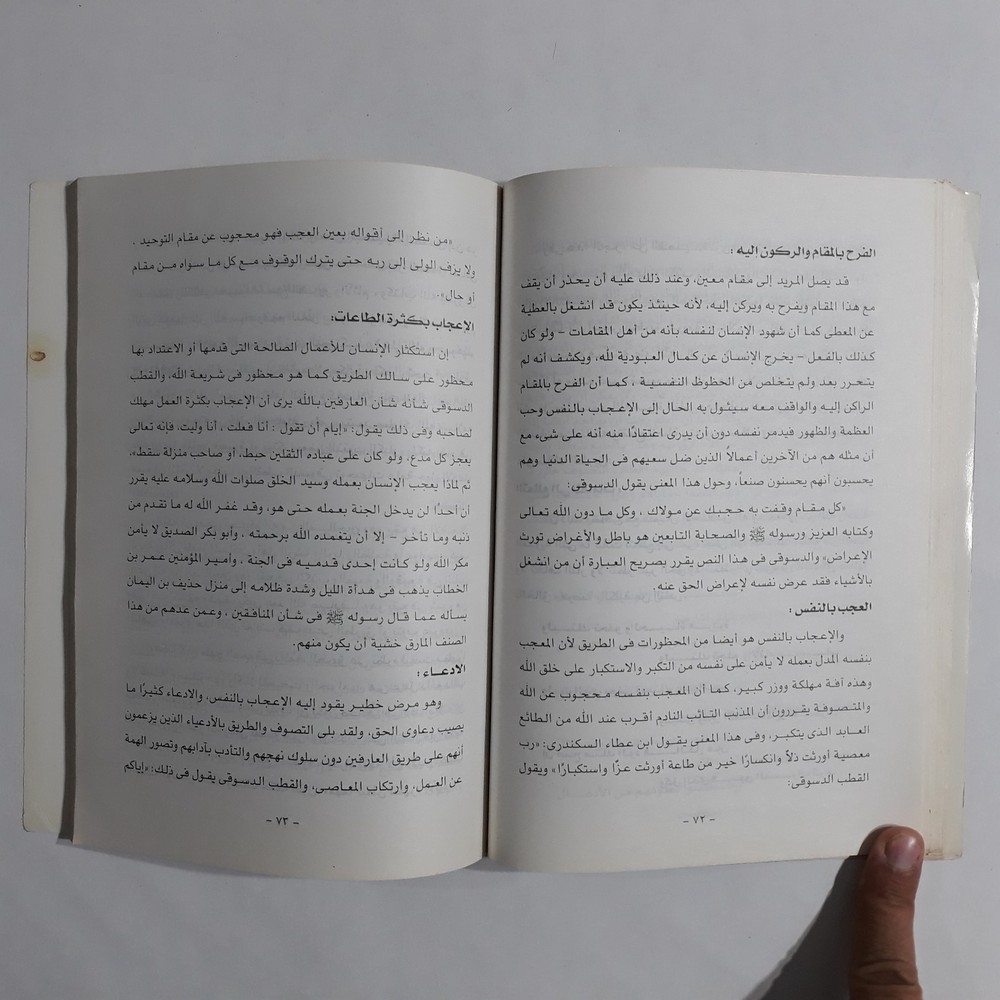 الفرح بالمقام والركون اليه :
قد يصل المريد إلى مقام معين، وعند ذلك عليه أن يحذر أن يقف
مع هذا المقام ويفرح به ويركن إليه، لأنه حينئذ يكون قد انشغل بالعطية
عن المعطى كما أن شهود الإنسان لنفسه بأنه من أهل المقامات – ولو كان
كذلك بالفعل – يخرج الإنسان عن كمال العبودية لله، ويكشف أنه لم
يتحرر بعد ولم يتخلص من الحظوظ النفسية ، كما أن الفرح بالمقام
الراكن إليه والواقف معه سيئول به الحال إلى الإعجاب بالنفس وحب
العظمة والظهور فيدمر نفسه دون أن يدرى اعتقادًا منه أنه على شىء مع
أن مثله هم من الآخرين أعمالاً الذين ضل سعيهم فى الحياة الدنيا وهم
يحسبون أنهم يحسنون صنعاً، وحول هذا المعنى يقول الدسوقى:
«كل مقام وقفت به حجبك عن مولاك ، وكل ما دون الله تعالى
وكتابه العزيز ورسوله ﷺ والصحابة التابعين هو باطل والأغراض تورث
الإعراض» والدسوقى فى هذا النص يقرر بصريح العبارة أن من انشغل
بالأشياء فقد عرض نفسه لإعراض الحق عنه.
العجب بالنفس :
والإعجاب بالنفس هو أيضا من المحظورات فى الطريق لأن المعجب
بنفسه المدل بعمله لا يأمن على نفسه من التكبر والاستكبار على خلق الله
وهذه آفة مهلكة ووزر كبير، كما أن المعجب بنفسه محجوب عن الله
والمتصوفة يقررون أن المذنب التائب النادم أقرب عند الله من الطائع
العابد الذى يتكبر، وفى هذا المعنى يقول ابن عطاء السكندرى: «رب
معصية أورثت ذلاً وانكسارًا خير من طاعة اورثت عزًا واستكبارًا» ويقول
القطب الدسوقى:
– ٧٢ –
«من نظر إلى أقواله بعين العجب فهو محجوب عن مقام التوحيد ،
ولا يزف الولى إلى ربه حتى يترك الوقوف مع كل ما سواه من مقام
أو حال»..
الإعجاب بكثرة الطاعات:
إن استكثار الإنسان للأعمال الصالحة التى قدمها أو الاعتداد بها
محظور على سالك الطريق كما هو محظور فى شريعة الله، والقطب
الدسوقى شأنه شأن العارفين بالله يرى أن الإعجاب بكثرة العمل مهلك
لصاحبه وفى ذلك يقول: «إيام أن تقول : أنا فعلت ، أنا وليت، فإنه تعالى
يعجز كل مدع، ولو كان على عباده الثقلين حبط، أو صاحب منزلة سقط»،
ثم لماذا يعجب الإنسان بعمله وسيد الخلق صلوات الله وسلامه عليه يقرر
أن أحدًا لن يدخل الجنة بعمله حتى هو، وقد غفر الله له ما تقدم من
ذنبه وما تأخر – إلا أن يتغمده الله برحمته ، وأبو بكر الصديق لا يأمن
مكر الله ولو كانت إحدى قدميه فى الجنة ، وأمير المؤمنين عمر بن
الخطاب يذهب فى هدأة الليل وشدة ظلامه إلى منزل حذيف بن اليمان
يسأله عما قال رسوله ﷺ فى شأن المنافقين ، وعمن عدهم من هذا
الصنف المارق خشية أن يكون منهم.
الادعاء :
وهو مرض خطير يقود إليه الإعجاب بالنفس، والادعاء كثيرًا ما
يصيب دعاوى الحق، ولقد بلى التصوف والطريق بالأدعياء الذين يزعمون
أنهم على طريق العارفين دون سلوك نهجهم والتأدب بآدابهم وتصور الهمة
عن العمل، وارتكاب المعاصى، والقطب الدسوقى يقول فى ذلك: «إياكم
– ٧٣ –